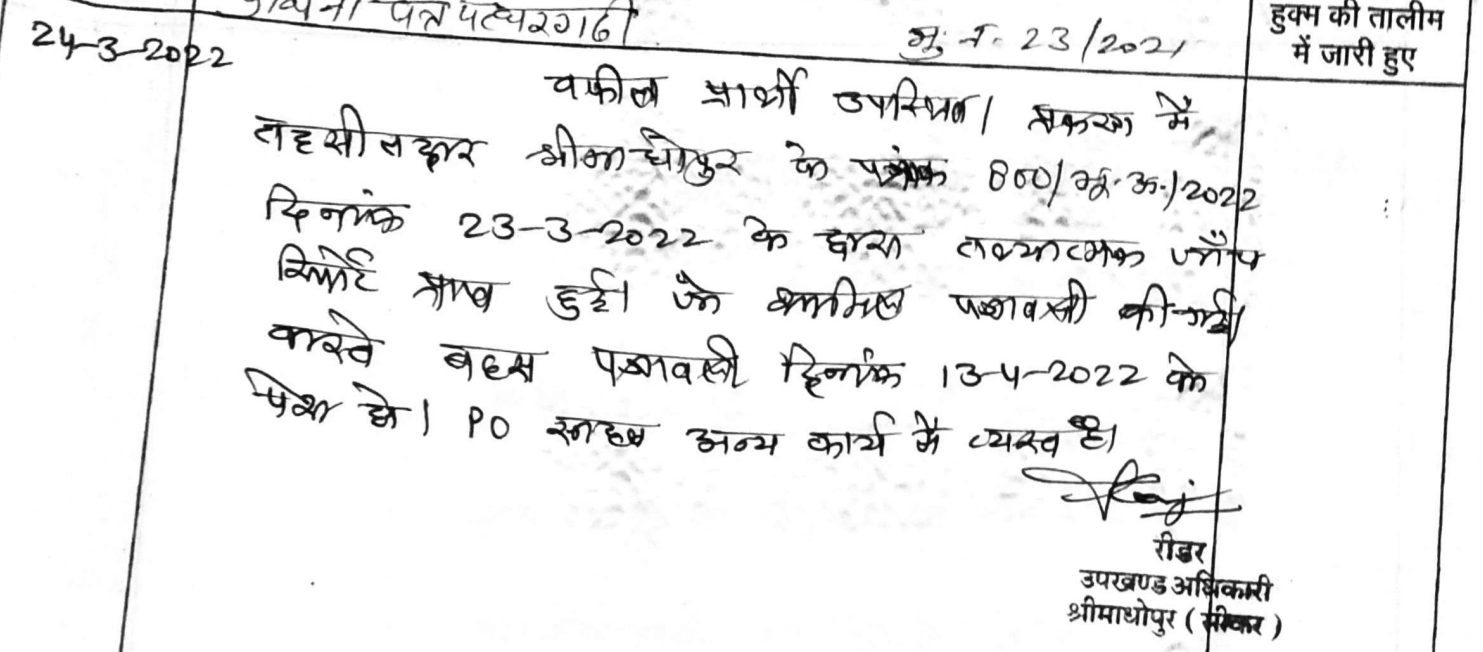 प्रार्थना पत्र पत्थरगढी मु. न. 23/2021
हुक्म की तालीम
में जारी हुए
24-3-2022
वकील प्रार्थी उपस्थित। प्रकरण में
तहसीलदार श्रीमाधोपुर के पत्रांक 800/भू.अ./2022
दिनांक 23-3-2022 के द्वारा तथ्यात्मक जाँच
रिपोर्ट प्राप्त हुई। जो शामिल पत्रावली की गई।
वास्ते बहस पत्रावली दिनांक 13-4-2022 को
पेश हो। PO साहब अन्य कार्य में व्यस्त है।
रीडर
उपखण्ड अधिकारी
श्रीमाधोपुर (सीकर)